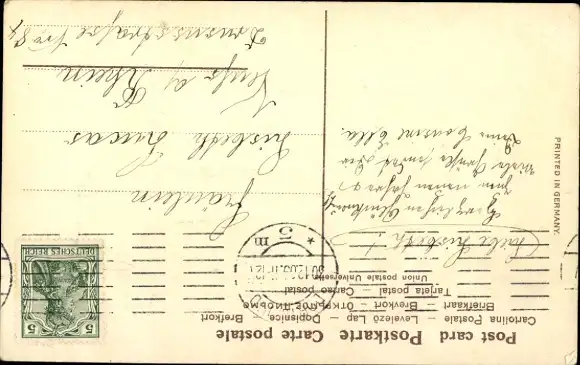 Post card Postkarte Carte postale
Cartolina Postale – Levelezö Lap – Dopisnice – Brefkort
Briefkaart – Brevkort – ОТКРЫТОЕ ПИСЬМО
Tarjeta postal – Cartao postal
Union postale Universelle
5 DEUTSCHES REICH 5
* 5 m
Liebe Lisbeth!
Herzlichen Glückwunsch
zum neuen Jahre
viele Grüße
Deine Cousine Ella.
Fräulein
Lisbeth Lucas
Neuss a/ Rhein
PRINTED IN GERMANY.